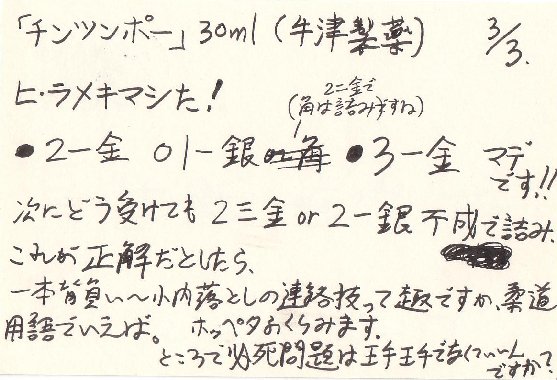 「チンツンポー」30ml (牛津製薬) 3/3.
ヒ・ラメキマシた!
2二金で
(角は詰みますね)
●2一金 ○1一銀or角 ●3一金 マデ
です!!
次にどう受けても 2三金or2一銀不成で詰み.
これが正解だとしたら、
一本背負い〜小内落としの連絡技って趣ですか、柔道
用語でいえば。 ホッペタふくらみます.
ところで必死問題は王手王手でなくていいん
ですか?